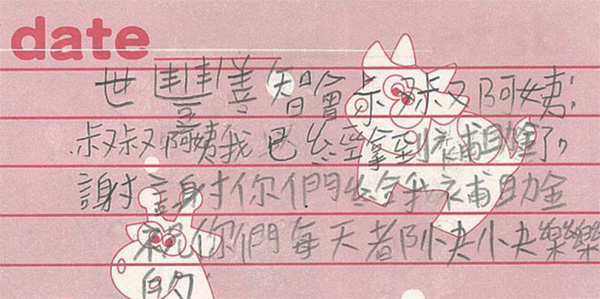 date
世豐善智會叔叔阿姨:
叔叔阿姨我已經拿到補助金了,
謝謝你們給我補助金
祝你們每天都快快樂樂
的